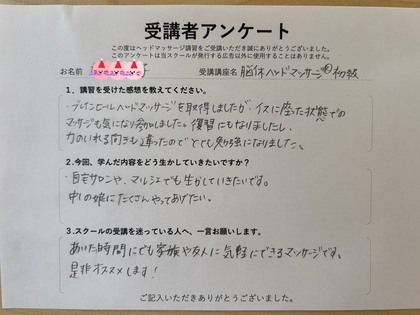 受講者アンケート
この度はヘッドマッサージ講習をご受講いただき誠にありがとうございました。
このアンケートは当スクールが発行する広告以外に使用することはありません。
お名前 受講講座名 脳休ヘッドマッサージ® 初級
1．講習を受けた感想を教えてください。
・ブレインヒールヘッドマッサージを取得しましたが、イスに座った状態での
マッサージも気になり参加しました。復習にもなりましたし、
力のいれる向きも違ったのでとても勉強になりました。
2.今回、学んだ内容をどう生かしていきたいですか？
・自宅サロンや、マルシェでも生かしていきたいです。
中1の娘にたくさんやってあげたい。
3.スクールの受講を迷っている人へ、一言お願いします。
あいた時間にでも家族や友人に気軽にできるマッサージです。
是非オススメします！
ご記入いただきありがとうございました。